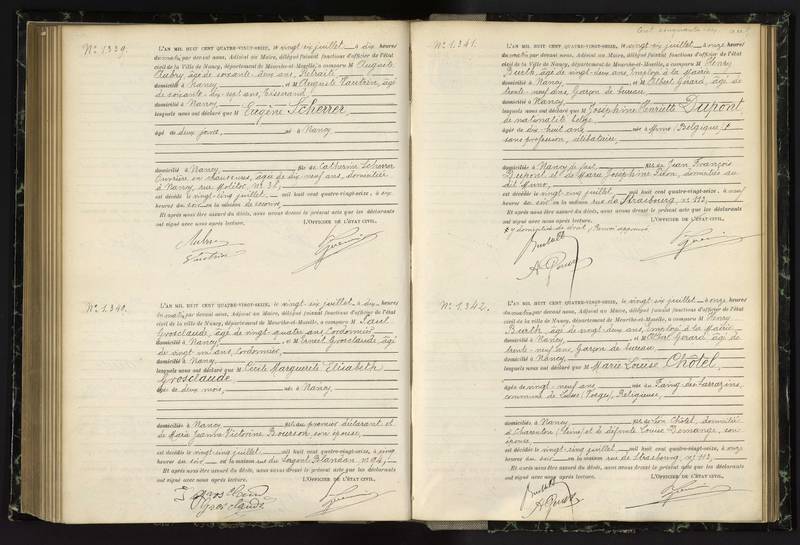 N° 1.339.
L'AN MIL HUIT CENT QUATRE-VINGT-SEIZE, le vingt six juillet à dix heures
du matin par devant nous, Adjoint au Maire, délégué faisant fonctions d'officier de l'état
civil de la Ville de Nancy, département de Meurthe-et-Moselle, a comparu M Auguste
Aubry, âgé de soixante deux ans, Retraité
domicilié à Nancy et M Auguste Vautrin, âgé
de soixante-dix-sept ans, Tisserand
domicilié à Nancy
lesquels nous ont déclaré que M Eugène Scherrer
âgé de deux jours, né à Nancy
domicilié à Nancy fils de Catherine Scherrer
Ouvrière en chaussures, âgée de dix-neuf ans, domiciliée
à Nancy, rue Molitor, n° 38,
est décédé le vingt-cinq juillet mil huit cent quatre-vingt-seize, à six
heures du soir en la maison de secours,
Et après nous être assuré du décès, nous avons dressé le présent acte que les déclarants
ont signé avec nous après lecture. L'OFFICIER DE L'ÉTAT CIVIL,
Aubry
Vautrin
N° 1.340.
L'AN MIL HUIT CENT QUATRE-VINGT-SEIZE, le vingt-six juillet à dix heures
du matin par devant nous, Adjoint au Maire, délégué faisant fonctions d'officier de l'état
civil de la ville de Nancy, département de Meurthe-et-Moselle, a comparu M Paul
Grosclaude, âgé de vingt-quatre ans, Cordonnier
domicilié à Nancy et M Ernest Grosclaude, âgé
de vingt un ans, Cordonnier,
domicilié à Nancy
lesquels nous ont déclaré que M Cécile Marguerite Elisabeth
Grosclaude
âgée de deux mois, née à Nancy
domiciliée à Nancy fille du premier déclarant et
de Marie Jeanne Victorine Bourson, son épouse,
est décédée le vingt-cinq juillet mil huit cent quatre-vingt-seize, à cinq
heures du soir en la maison rue du Sergent Blandan n° 94,
Et après nous être assuré du décès, nous avons dressé le présent acte que les déclarants
ont signé avec nous après lecture. L'OFFICIER DE L'ÉTAT CIVIL,
Grosclaude
Grosclaude
N° 1.341.
L'AN MIL HUIT CENT QUATRE-VINGT-SEIZE, le vingt six juillet à onze heures
du matin par devant nous, Adjoint au Maire, délégué faisant fonctions d'officier de l'état
civil de la Ville de Nancy, département de Meurthe-et-Moselle, a comparu M Henry
Burth, âgé de vingt-deux ans, Employé à la Mairie
domicilié à Nancy et M Albert Gérard, âgé de
trente-neuf ans, Garçon de bureau
domicilié à Nancy
lesquels nous ont déclaré que M Joséphine Henriette Dupont,
de nationalité belge
âgée de dix-huit ans née à (Belgique)
sans profession, célibataire,
domiciliée à Nancy de fait fille de Jean François
Dupont et de Marie Joséphine domiciliés au
dit
est décédée le vingt-cinq juillet mil huit cent quatre-vingt-seize, à neuf
heures du soir en la maison rue de Strasbourg, n° 113,
Et après nous être assuré du décès, nous avons dressé le présent acte que les déclarants
ont signé avec nous après lecture. L'OFFICIER DE L'ÉTAT CIVIL,
y domiciliée de droit, Renvoi approuvé
N° 1.342.
L'AN MIL HUIT CENT QUATRE-VINGT-SEIZE, le vingt-six juillet à onze heures
du matin par devant nous, Adjoint au Maire, délégué faisant fonctions d'officier de l'état
civil de la ville de Nancy, département de Meurthe-et-Moselle, a comparu M Henry
Burth, âgé de vingt-deux ans, Employé à la Mairie
domicilié à Nancy et M Albert Gérard, âgé de
trente-neuf ans, Garçon de bureau
domicilié à Nancy
lesquels nous ont déclaré que M Marie Louise Chôtel,
âgée de vingt-neuf ans née au Ban-de-
commune de (Vosges), Religieuse,
domiciliée à Nancy fille de Léon Chôtel, domicilié
à Charenton (Seine) et de défunte Louise Demange, son
épouse
est décédée le vingt-cinq juillet mil huit cent quatre-vingt-seize, à onze
heures du soir en la maison rue de Strasbourg, n° 113,
Et après nous être assuré du décès, nous avons dressé le présent acte que les déclarants
ont signé avec nous après lecture. L'OFFICIER DE L'ÉTAT CIVIL,